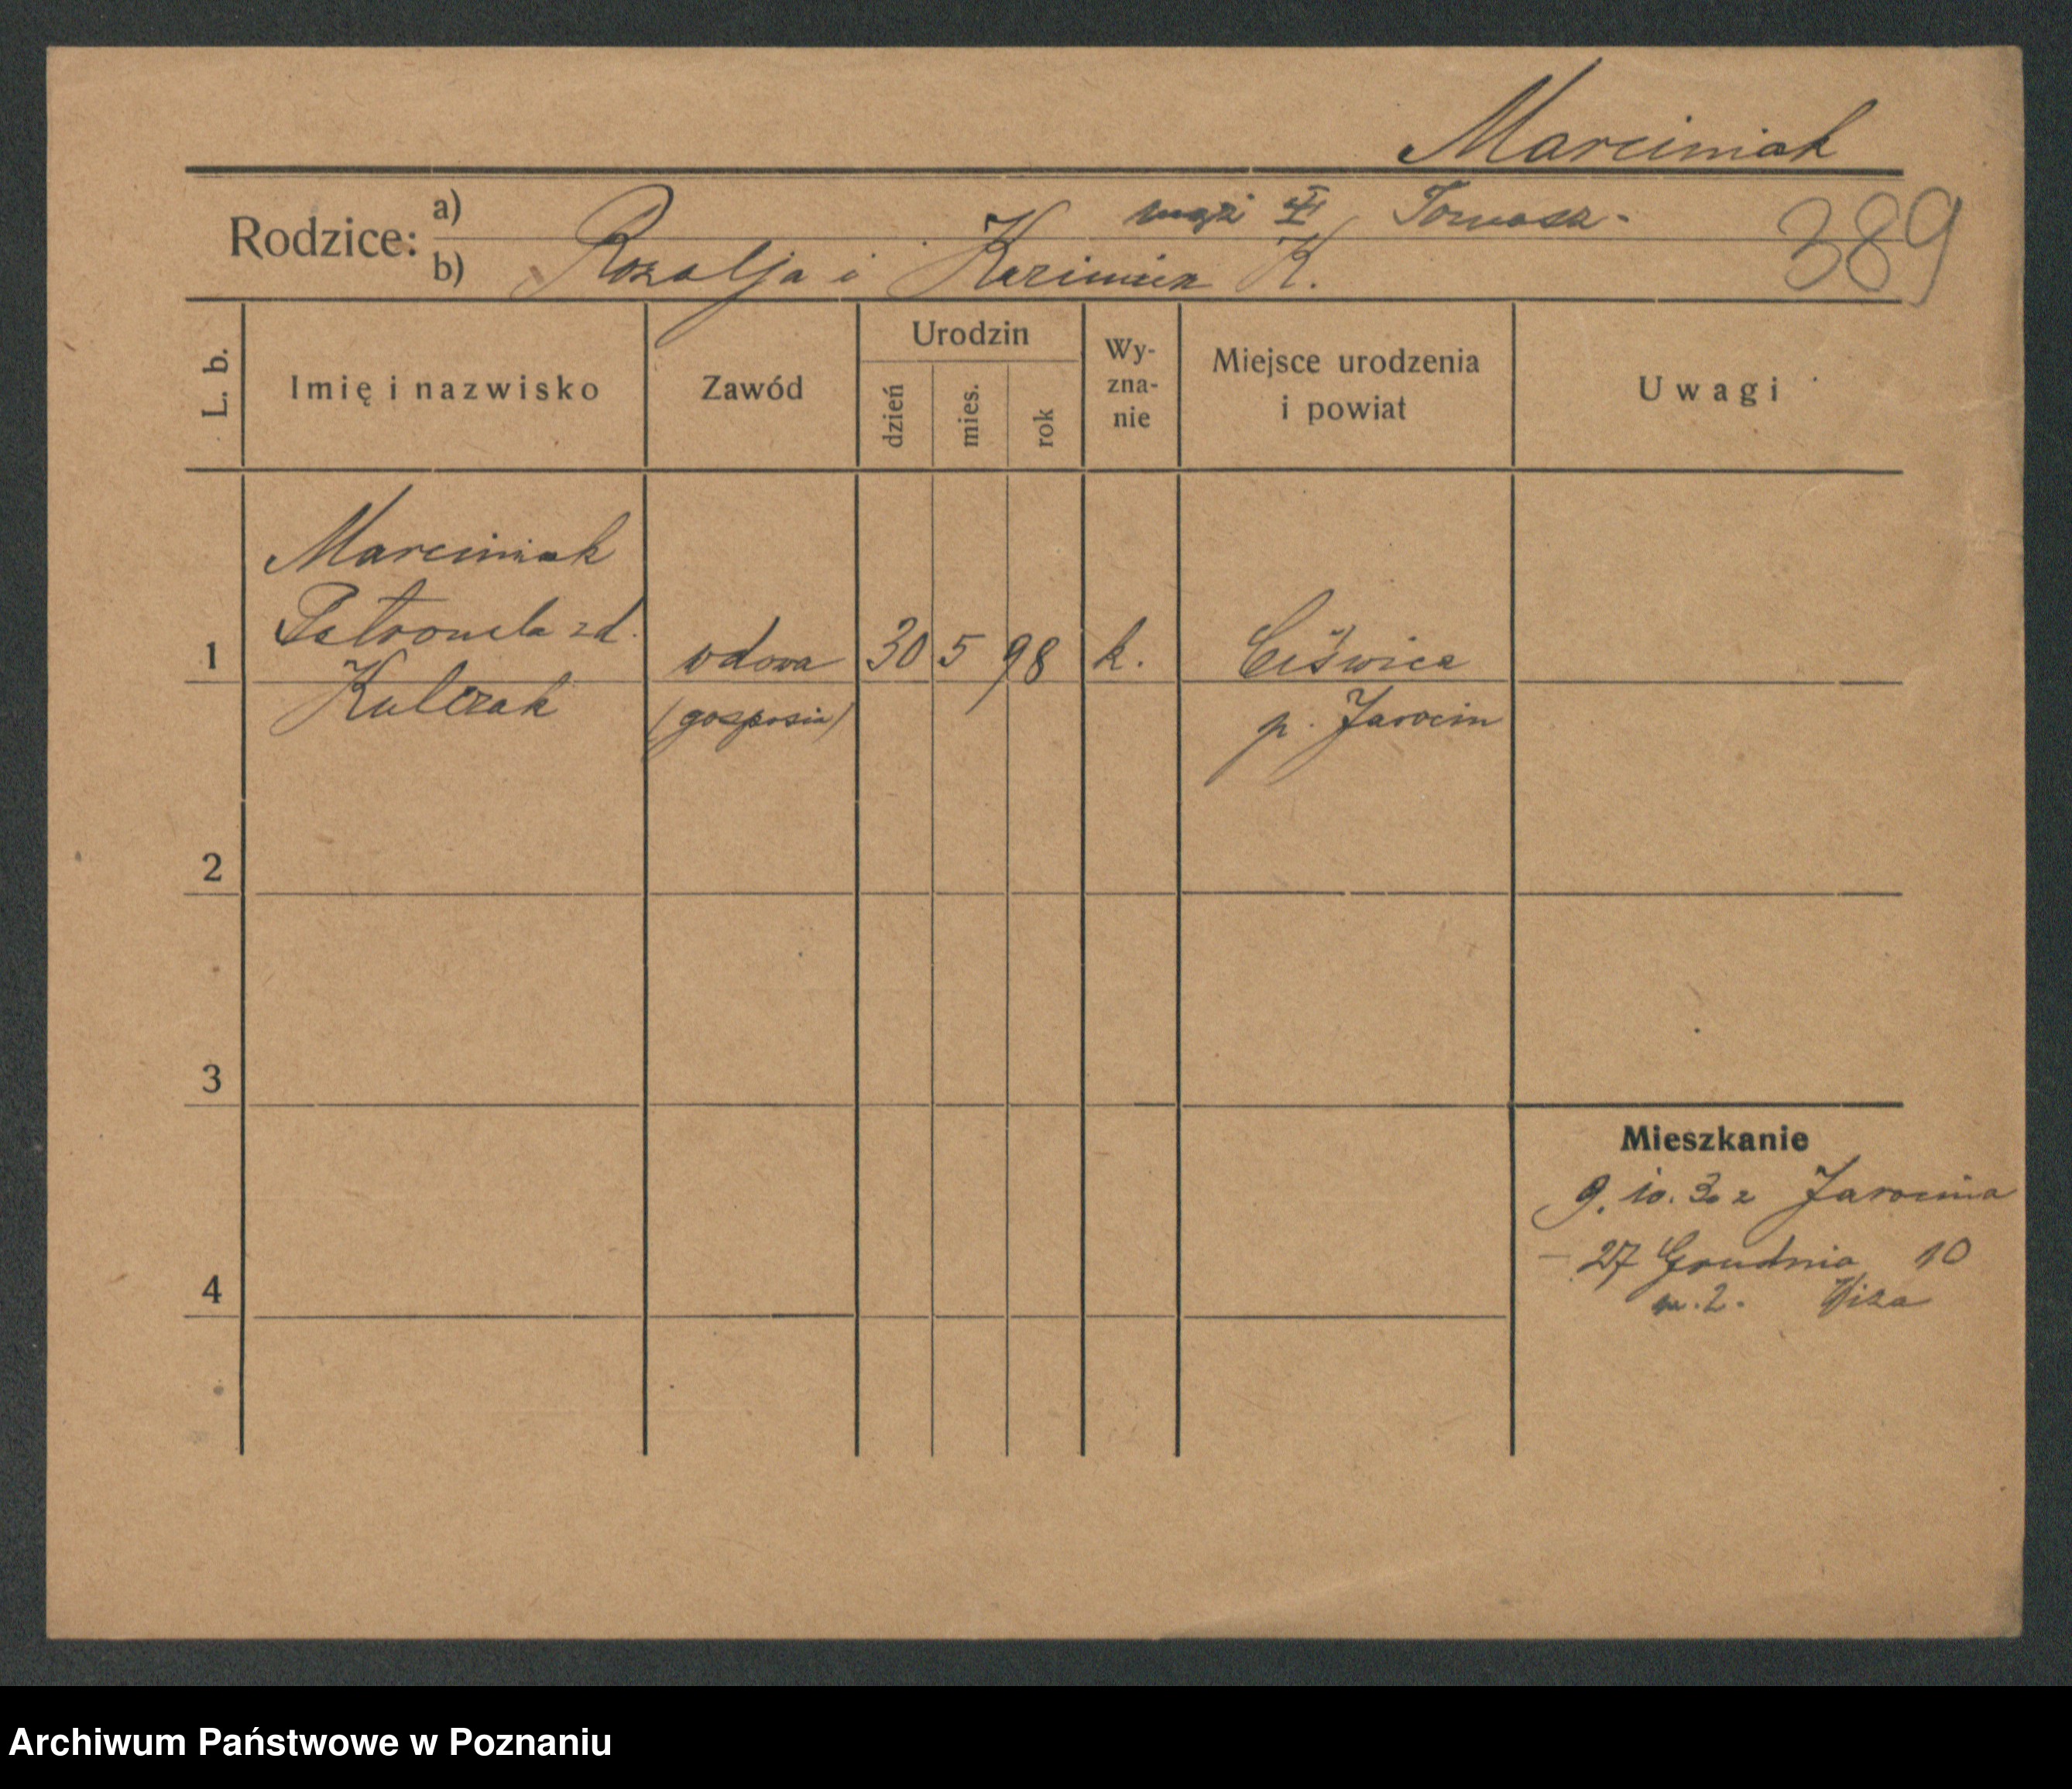 Marciniak
Rodzice:
a) mąż II Tomasz.
b) Rozalja i Kazimierz K.
389
L. b.
Imię i nazwisko
Zawód
Urodzin
dzień
mies.
rok
Wy-
zna-
nie
Miejsce urodzenia
i powiat
Uwagi
Marciniak
Petronela zd.
1 Kulczak
wdowa
(gosposia)
30 5 98
k.
Ciświca
p. Jarocin
2
3
4
Mieszkanie
9. 10. 30 z Jarocina
– 27 Grudnia 10
m. 2.
Archiwum Państwowe w Poznaniu